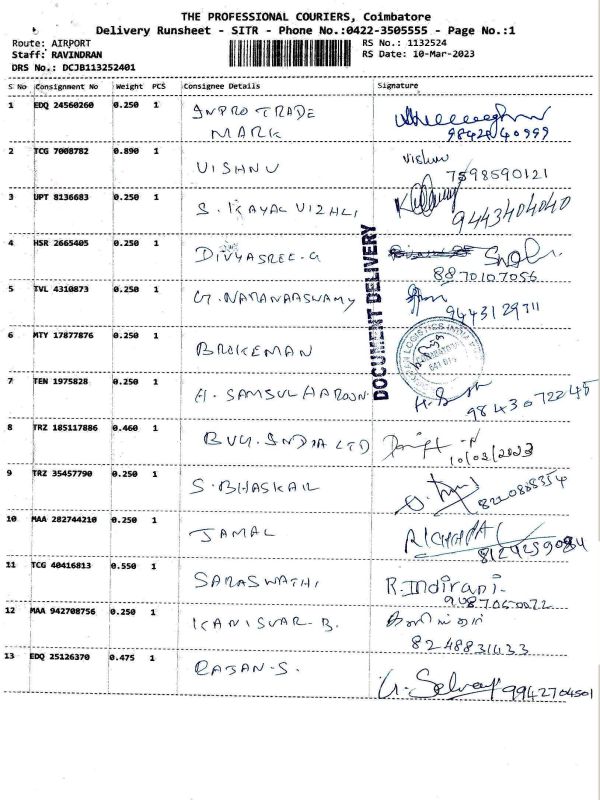 THE PROFESSIONAL COURIERS, Coimbatore
Delivery Runsheet - SITR - Phone No.:0422-3505555 - Page No.:1
Route: AIRPORT
RS No.: 1132524
Staff: RAVINDRAN
RS Date: 10-Mar-2023
DRS No.: DCJB113252401
S No Consignment No Weight PCS Consignee Details Signature
1 EDQ 24560260 0.250 1 INPRO TRADE
MARK
2 TCG 7008782 0.890 1 VISHNU Vishnu
7598590121
3 UPT 8136683 0.250 1 S. KAYAL VIZHLI
9443404040
4 HSR 2665405 0.250 1 DIVYASREE-G
8870107056
5 TVL 4310873 0.250 1 G. NARANAASWAMY
6 MTY 17877876 0.250 1 BROKEMAN
DOCUMENT DELIVERY
7 TEN 1975828 0.250 1 H. SAMSUL HAROON
8 TRZ 185117886 0.460 1 BVG. INDIA LTD
10/03/2023
9 TRZ 35457790 0.250 1 S. BHASKAR
8220808354
10 MAA 282744210 0.250 1 JAMAL
11 TCG 40416813 0.550 1 SARASWATHI R. Indirani.
12 MAA 942708756 0.250 1 KANISVAR-B.
8248831433
13 EDQ 25126370 0.475 1 RAJAN-S.
G. Selvaraj 9942704501